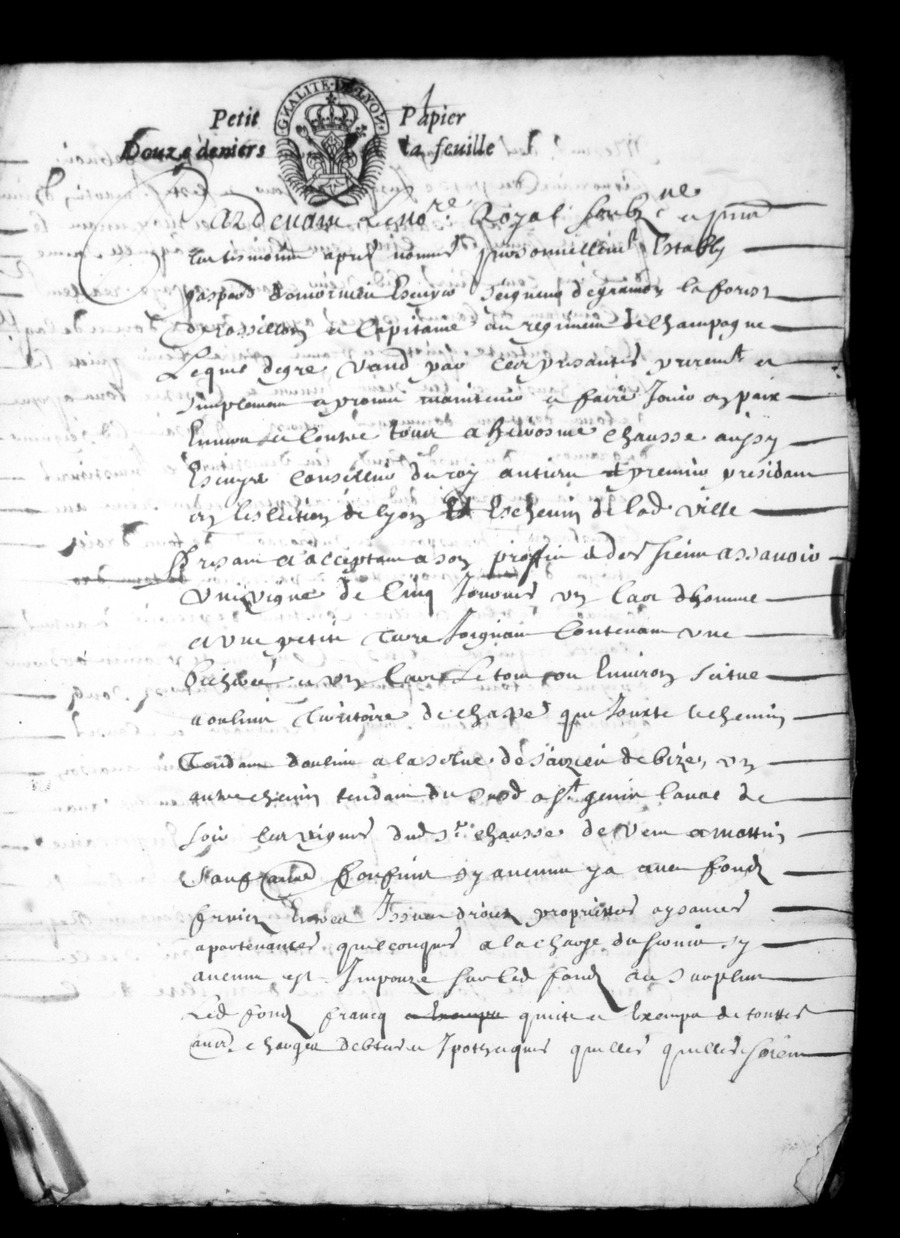 GNALITE DE LYON
Petit Papier
Douze deniers la feuille
Pardevant Le no.re Royal soub.ne et
tesmoins apres nommes personnellem.t Estably
gaspard Escuyer Seigneur degramon la forest
de rossillon et Capitaine au regiment de Champagne
Lequel degre vand par Ces presantes purem.t et
simplement a promis maintenir et faire Jouir en paix
Envers et Contre tous a chausse aussy
Escuyer Conseiller du roy antien premier presidant
en leslection de lyon Et Eschevin de lad ville
Presant et acceptant a son proffit et des siens assavoir
Une vigne de Cinq Journes un Cart dhomme
et une petite terre Joignant Contenant une
bicheree et un Cart Le tout ou Environ scitue
a oullins Territoire de chappes que Jouxte le chemin
Tendant doullins a la de bize, un
autre chemin tendant du a s.t genis laval de
soir les vignes dud s.r chausse de vent et mattin
Sauf Confins sy aucuns y a avec fonds
fruicts Entrees Issues droits proprietes aysances
apartenances quelconques a la charge du servis sy
aucun est Impouze sur led fond au surplus
Led fond francq quite et Exempt de touttes
charges debtes et Ipotheques quelles quelles soient